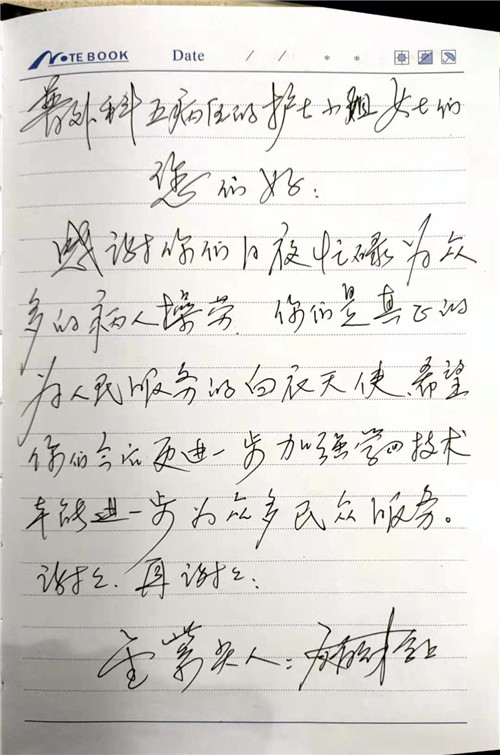 NOTEBOOK Date / / * *
普外科五病区的护士小姐女士们
您们好：
感谢你们日夜忙碌为众
多的病人操劳.你们是真正的
为人民服务的白衣天使、希望
你们今后更进一步加强学习技术
本领进一步为众多民众服务。
谢谢.再谢谢：
人：